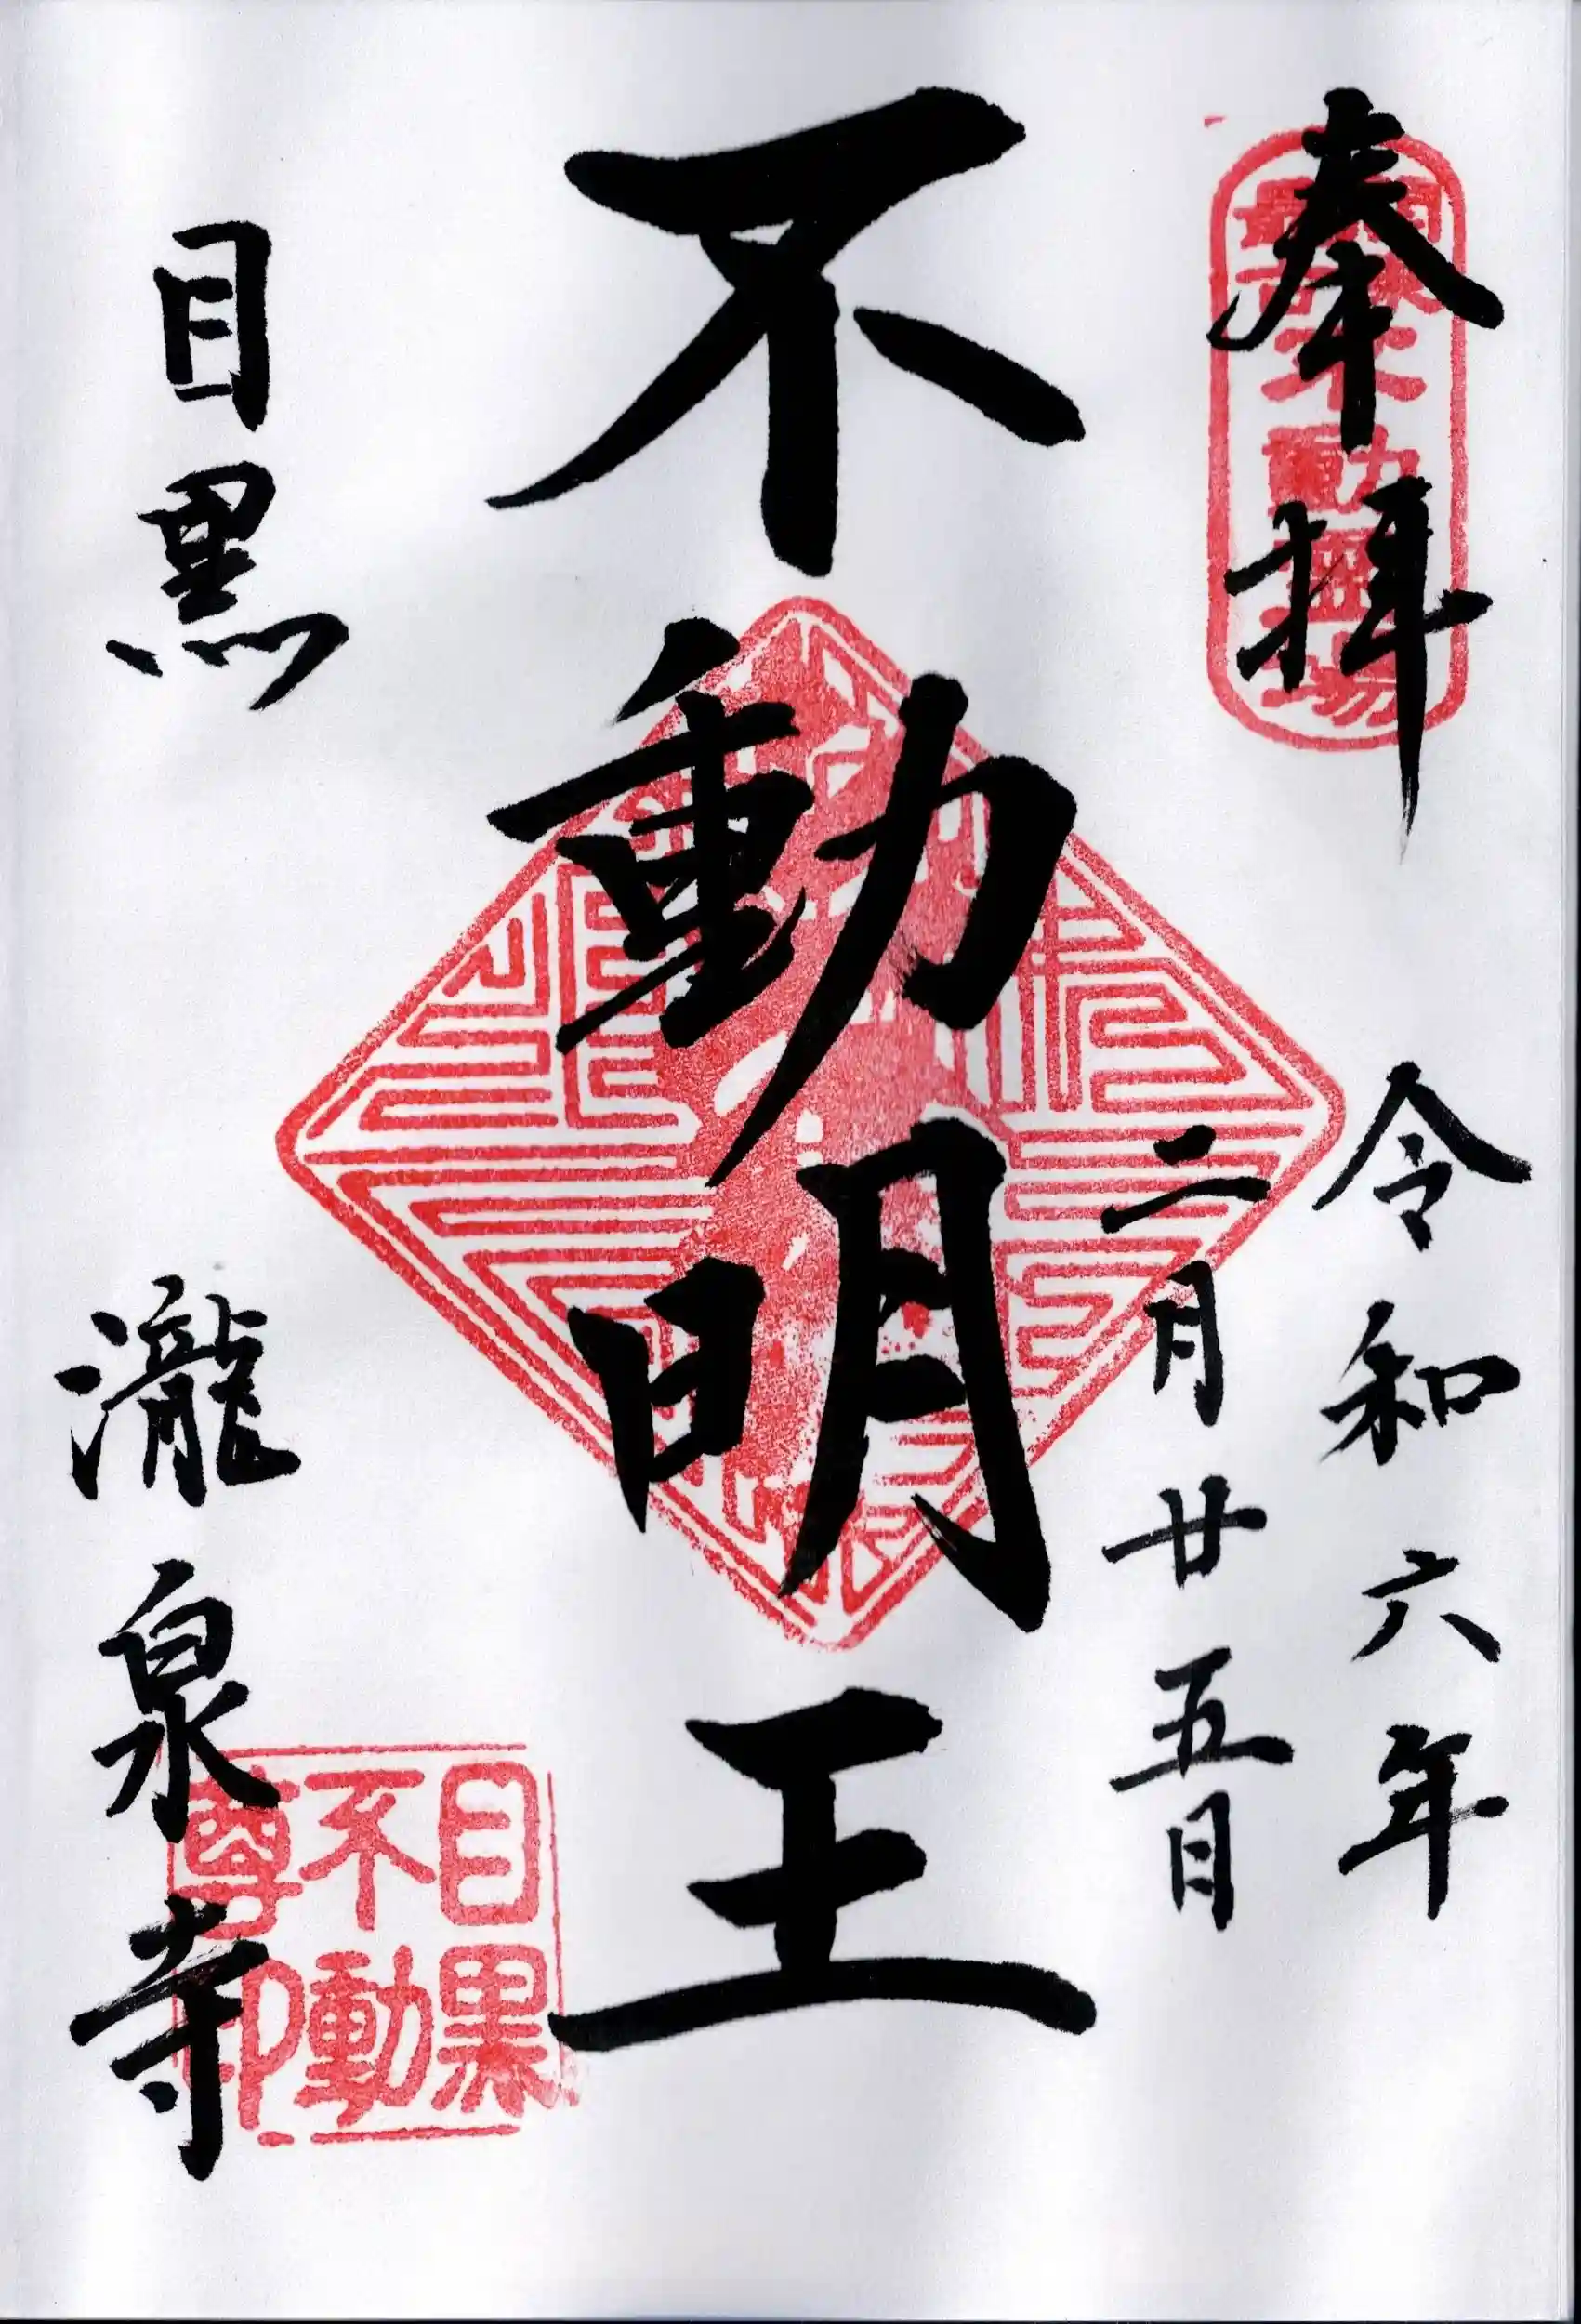 奉拝
關東最古不動靈場
令和六年
二月廿五日
不動明王
目黒
瀧泉寺
目黒
不動
尊印